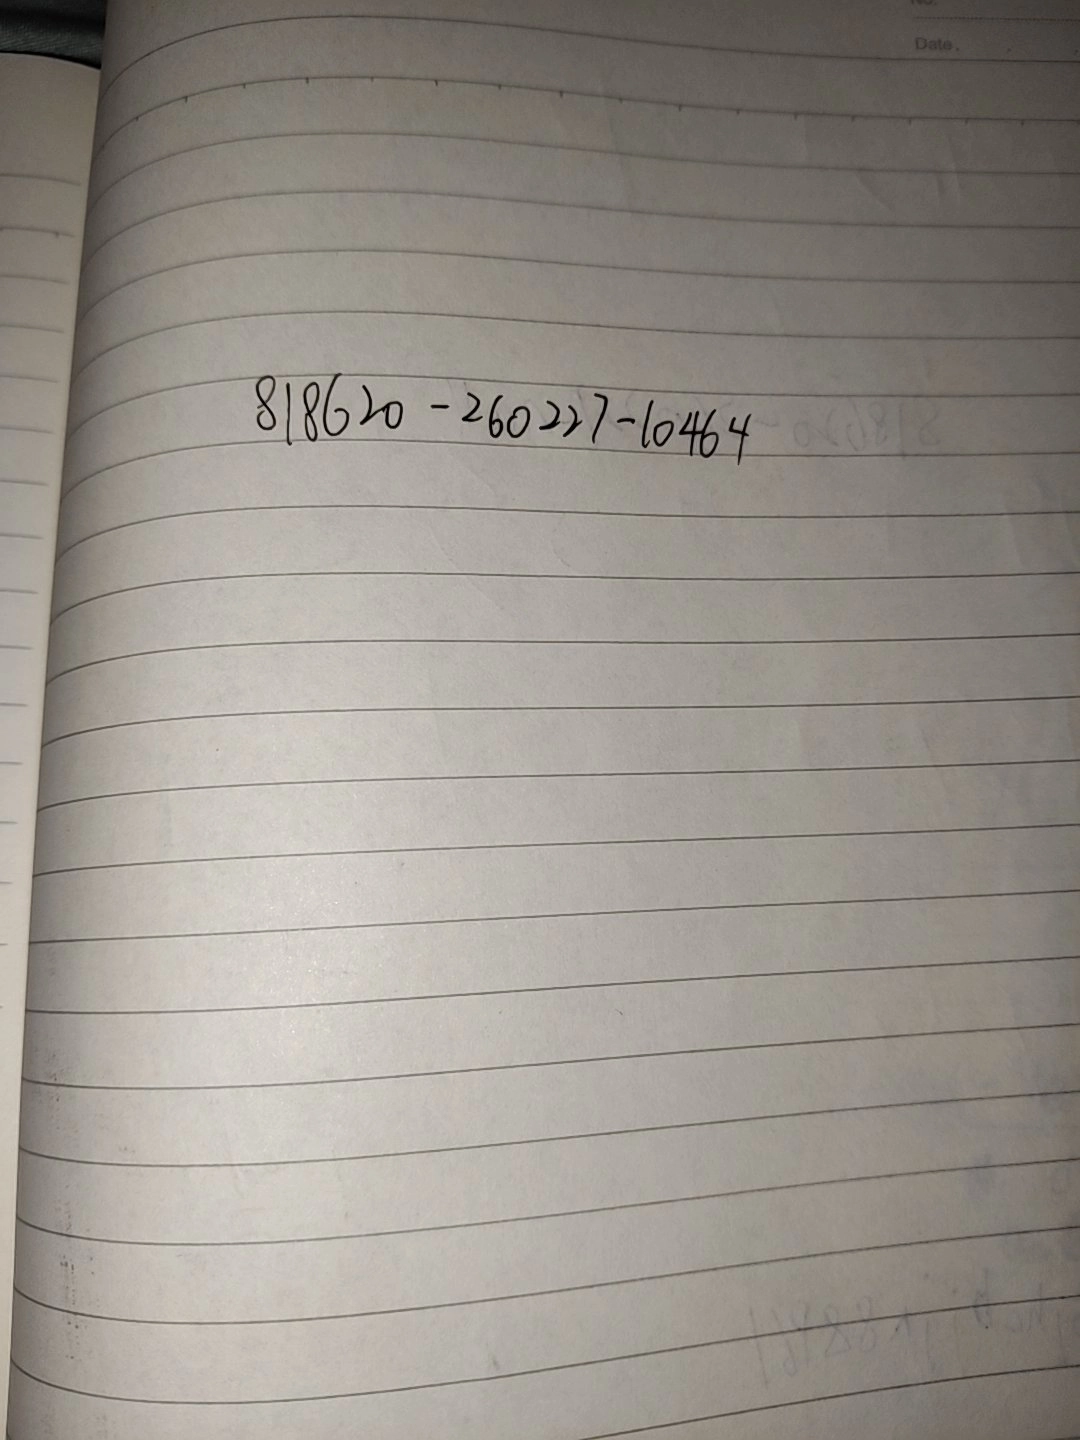 No.
Date.
818620-260227-10464